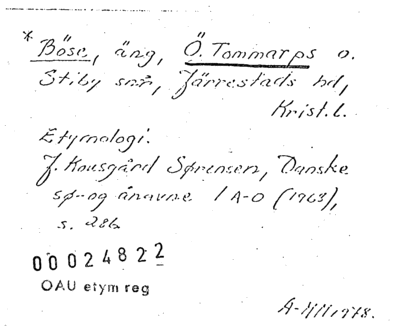 * Böse, äng, Ö. Tommarps o.
Stiby snr, Järrestads hd,
Krist. l.
Etymologi.
J. Kousgård Sørensen, Danske
sø- og ånavne 1 A-O (1968),
s. 286
00024822
OAU etym reg
1978.